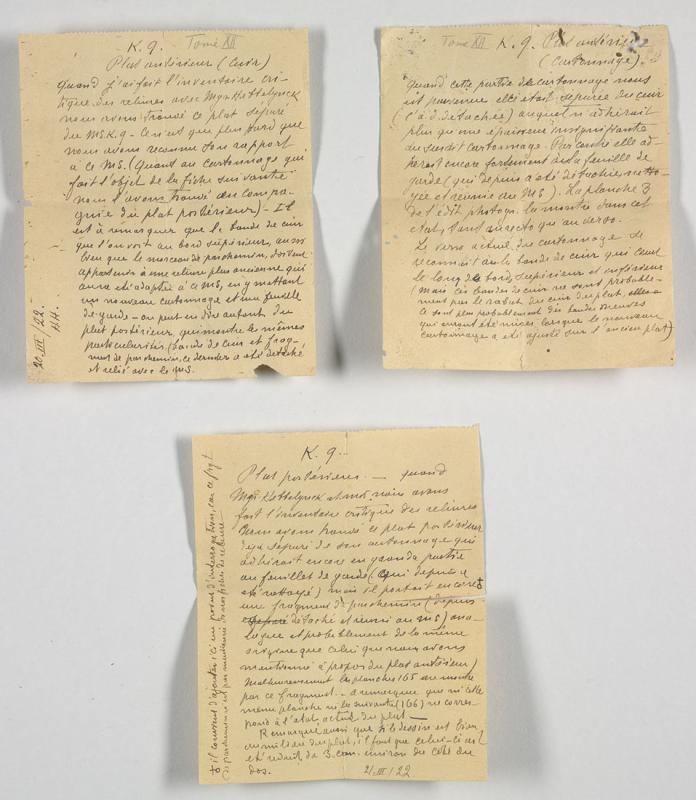 K. 9. Tome XII
Plat antérieur (Cuir)
Quand j'ai fait l'inventaire cri-
tique des reliures avec Mgr. Hebbelynck
nous avons trouvé ce plat séparé
du MS. K. 9 - Ce n'est que plus tard que
nous avons reconnu son rapport
à ce MS. (Quant au cartonnage qui
fait l'objet de la fiche suivante
nous l'avons trouvé en compa-
gnie du plat postérieur) - Il
est à remarquer que la bande de cuir
que l'on voit au bord supérieur, aussi
bien que le morceau de parchemin, doivent
appartenir à une reliure plus ancienne qui
aura été adaptée à ce MS, en y mettant
un nouveau cartonnage et une feuille
de garde - on peut en dire autant du
plat postérieur, qui montre les mêmes
particularités. (bande de cuir et frag-
ment de parchemin, ce dernier a été détaché
et relié avec le MS.
20 III / 22.
H.H.
Tome XII K. 9. Plat antérieur
(Cartonnage).
Quand cette partie de cartonnage nous
est parvenue elle était séparée du cuir
(c'à d. détachée) auquel n'adhérait
plus qu'une épaisseur insignifiante
du susdit cartonnage. Par contre elle ad-
hérait encore fortement à la feuille de
garde (qui depuis a été détachée, netto-
yée et réunie au MS). La planche 3
de l'édit. photogr. la montre dans cet
état, tant au recto qu'au verso.
Le verso actuel du cartonnage se
reconnait à la bande de cuir qui court
le long des bords supérieur et inférieur
(mais ces bandes de cuir ne sont probable-
ment pas le rabat du cuir du plat, elles
ce sont plus probablement des bandes
qui auront été mises lorsque le nouveau
cartonnage a été ajusté sur l'ancien plat)
K. 9.
Plat postérieur. — Quand
Mgr. Hebbelynck et moi, nous avons
fait l'inventaire critique des reliures
nous avons trouvé ce plat postérieur
déjà séparé de son cartonnage qui
adhérait encore en grande partie
au feuillet de garde (qui depuis a
été nettoyé) mais il portait encore ‡
une fragment de parchemin (depuis
détaché et réuni au MS) ana-
logue et probablement de la même
origine que celui que nous avons
mentionné à propos du plat antérieur)
Malheureusement la planche 165 ne montre
pas ce fragment. - A remarquer que ni cette
même planche ni la suivante (166) ne corres-
pond à l'état actuel du plat —
Remarquer aussi que si le dessin est bien
au milieu du plat, il faut que celui-ci ait
été réduit de 3 cm. environ du côté du
dos. 21 III / 22
‡ il convient d'ajouter ici un point d'interrogation, car ce frgt.
de parchemin n'est pas mentionné dans nos fiches de reliure